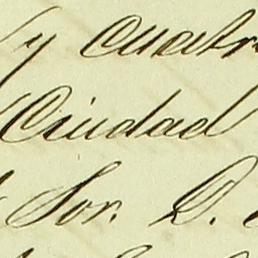 y Cuatr
Ciudad
Sor. D.